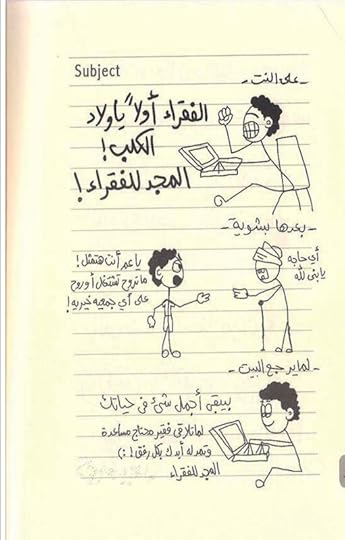 Subject
- على النت -
الفقراء أولاً يا ولاد
الكلب!
المجد للفقراء!
- بعدها بشوية -
يا عم أنت هتمثل!
ما تروح تشتغل أو روح
على أي جمعيه خيريه!
أي حاجه
يا بني لله
- لما يرجع البيت -
بيبقى أجمل شئ في حياتك
لما تلاقي فقير محتاج مساعدة
وتمد له أيدك بكل رفق! :)
المجد للفقراء